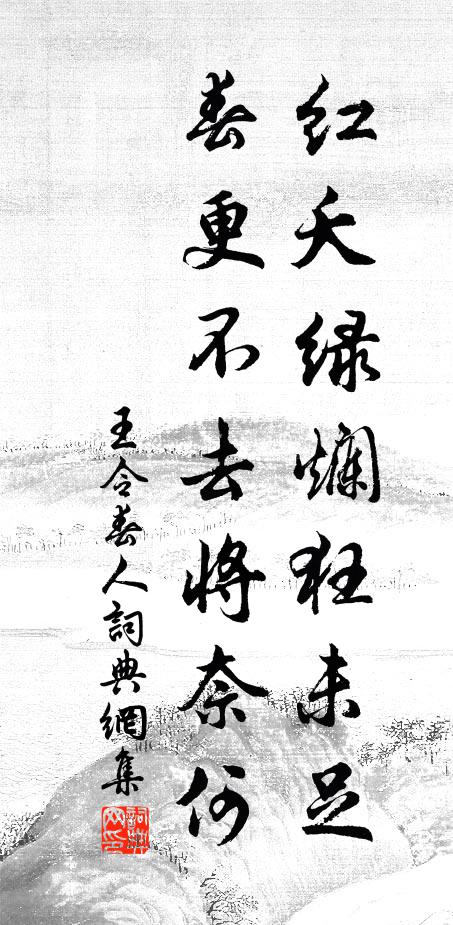 红夭绿烂狂未足
春更不去将奈何
王令春人詞典網集